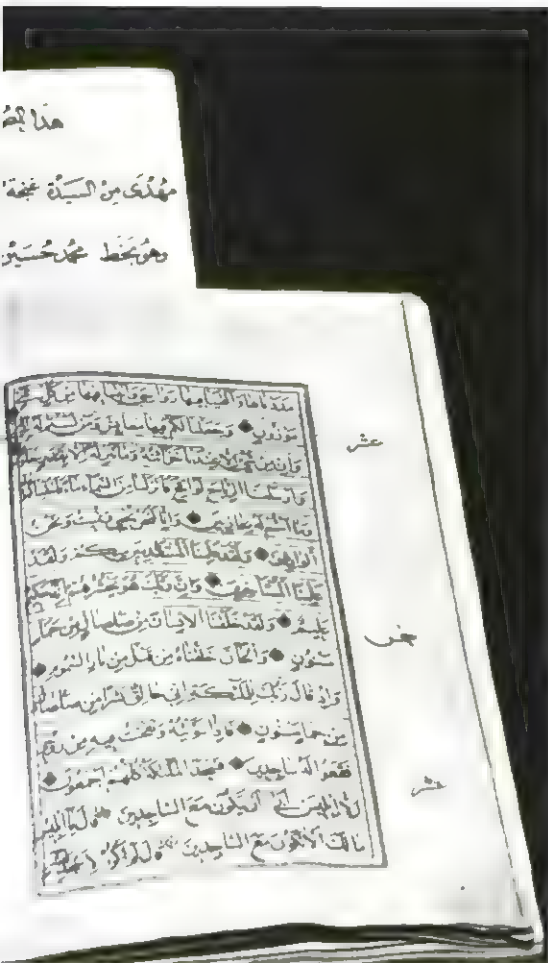 هذا المص
مهدى من السيدة نجمة
وهو بخط محمد حسين
مددناها وألقينا فيها رواسي وأنبتنا فيها من كل شيء
موزون وجعلنا لكم فيها معايش ومن لستم له
وإن من شيء إلا عندنا خزائنه وما ننزله إلا بقدر
وأرسلنا الرياح لواقح فأنزلنا من السماء ماء فأسقيناكموه
وما أنتم له بخازنين وإنا لنحن نحيي ونميت ونحن
الوارثون ولقد علمنا المستقدمين منكم ولقد
علمنا المستأخرين وإن ربك هو يحشرهم إنه حكيم
عليم ولقد خلقنا الإنسان من صلصال من حمإ
مسنون والجان خلقناه من قبل من نار السموم
وإذ قال ربك للملئكة إني خالق بشرا من صلصال
من حمإ مسنون فإذا سويته ونفخت فيه من روحي
فقعوا له ساجدين فسجد الملئكة كلهم أجمعون
إلا إبليس أبى أن يكون مع الساجدين قال يا إبليس
مالك ألا تكون مع الساجدين قال لم أكن لأسجد
عشر
خمس
عشر